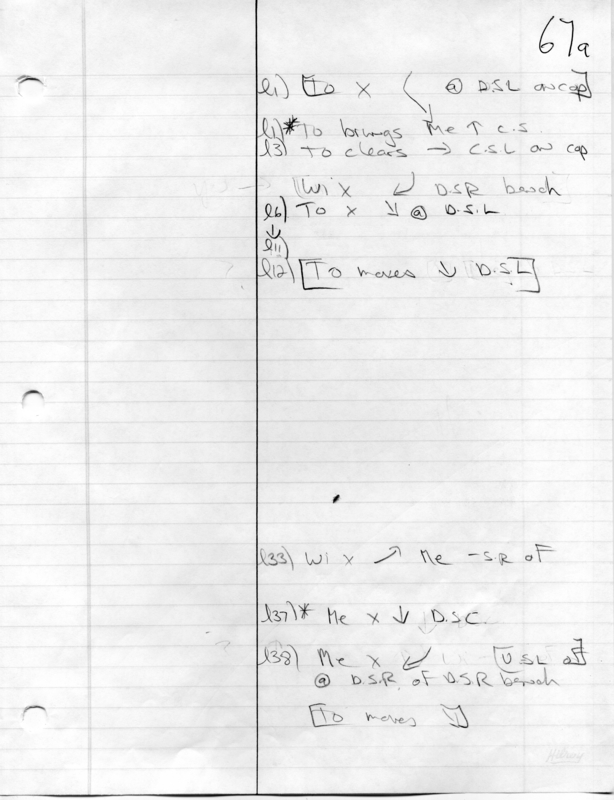 67a
l1) [To x ( @ D.S.L on cap]
l1)* To brings Me ↑ C.S.
l3) To clears → C.S.L on cap
Wi x ↙ D.S.R bench
l6) To x ↘ @ D.S.L
↓
l11)
l12) [To moves ↓ D.S.L]
l33) Wi x ↗ Me - S.R of
l37)* Me x ↓ D.S.C.
l38) Me x ↙ [U.S.L of]
@ D.S.R. of D.S.R bench
[To moves ↘]
Hilroy